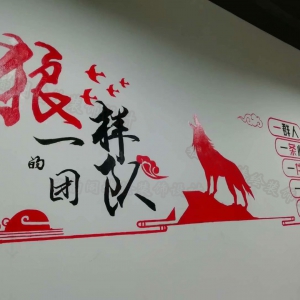 狼
一样
的
团队
一群人
一条
一